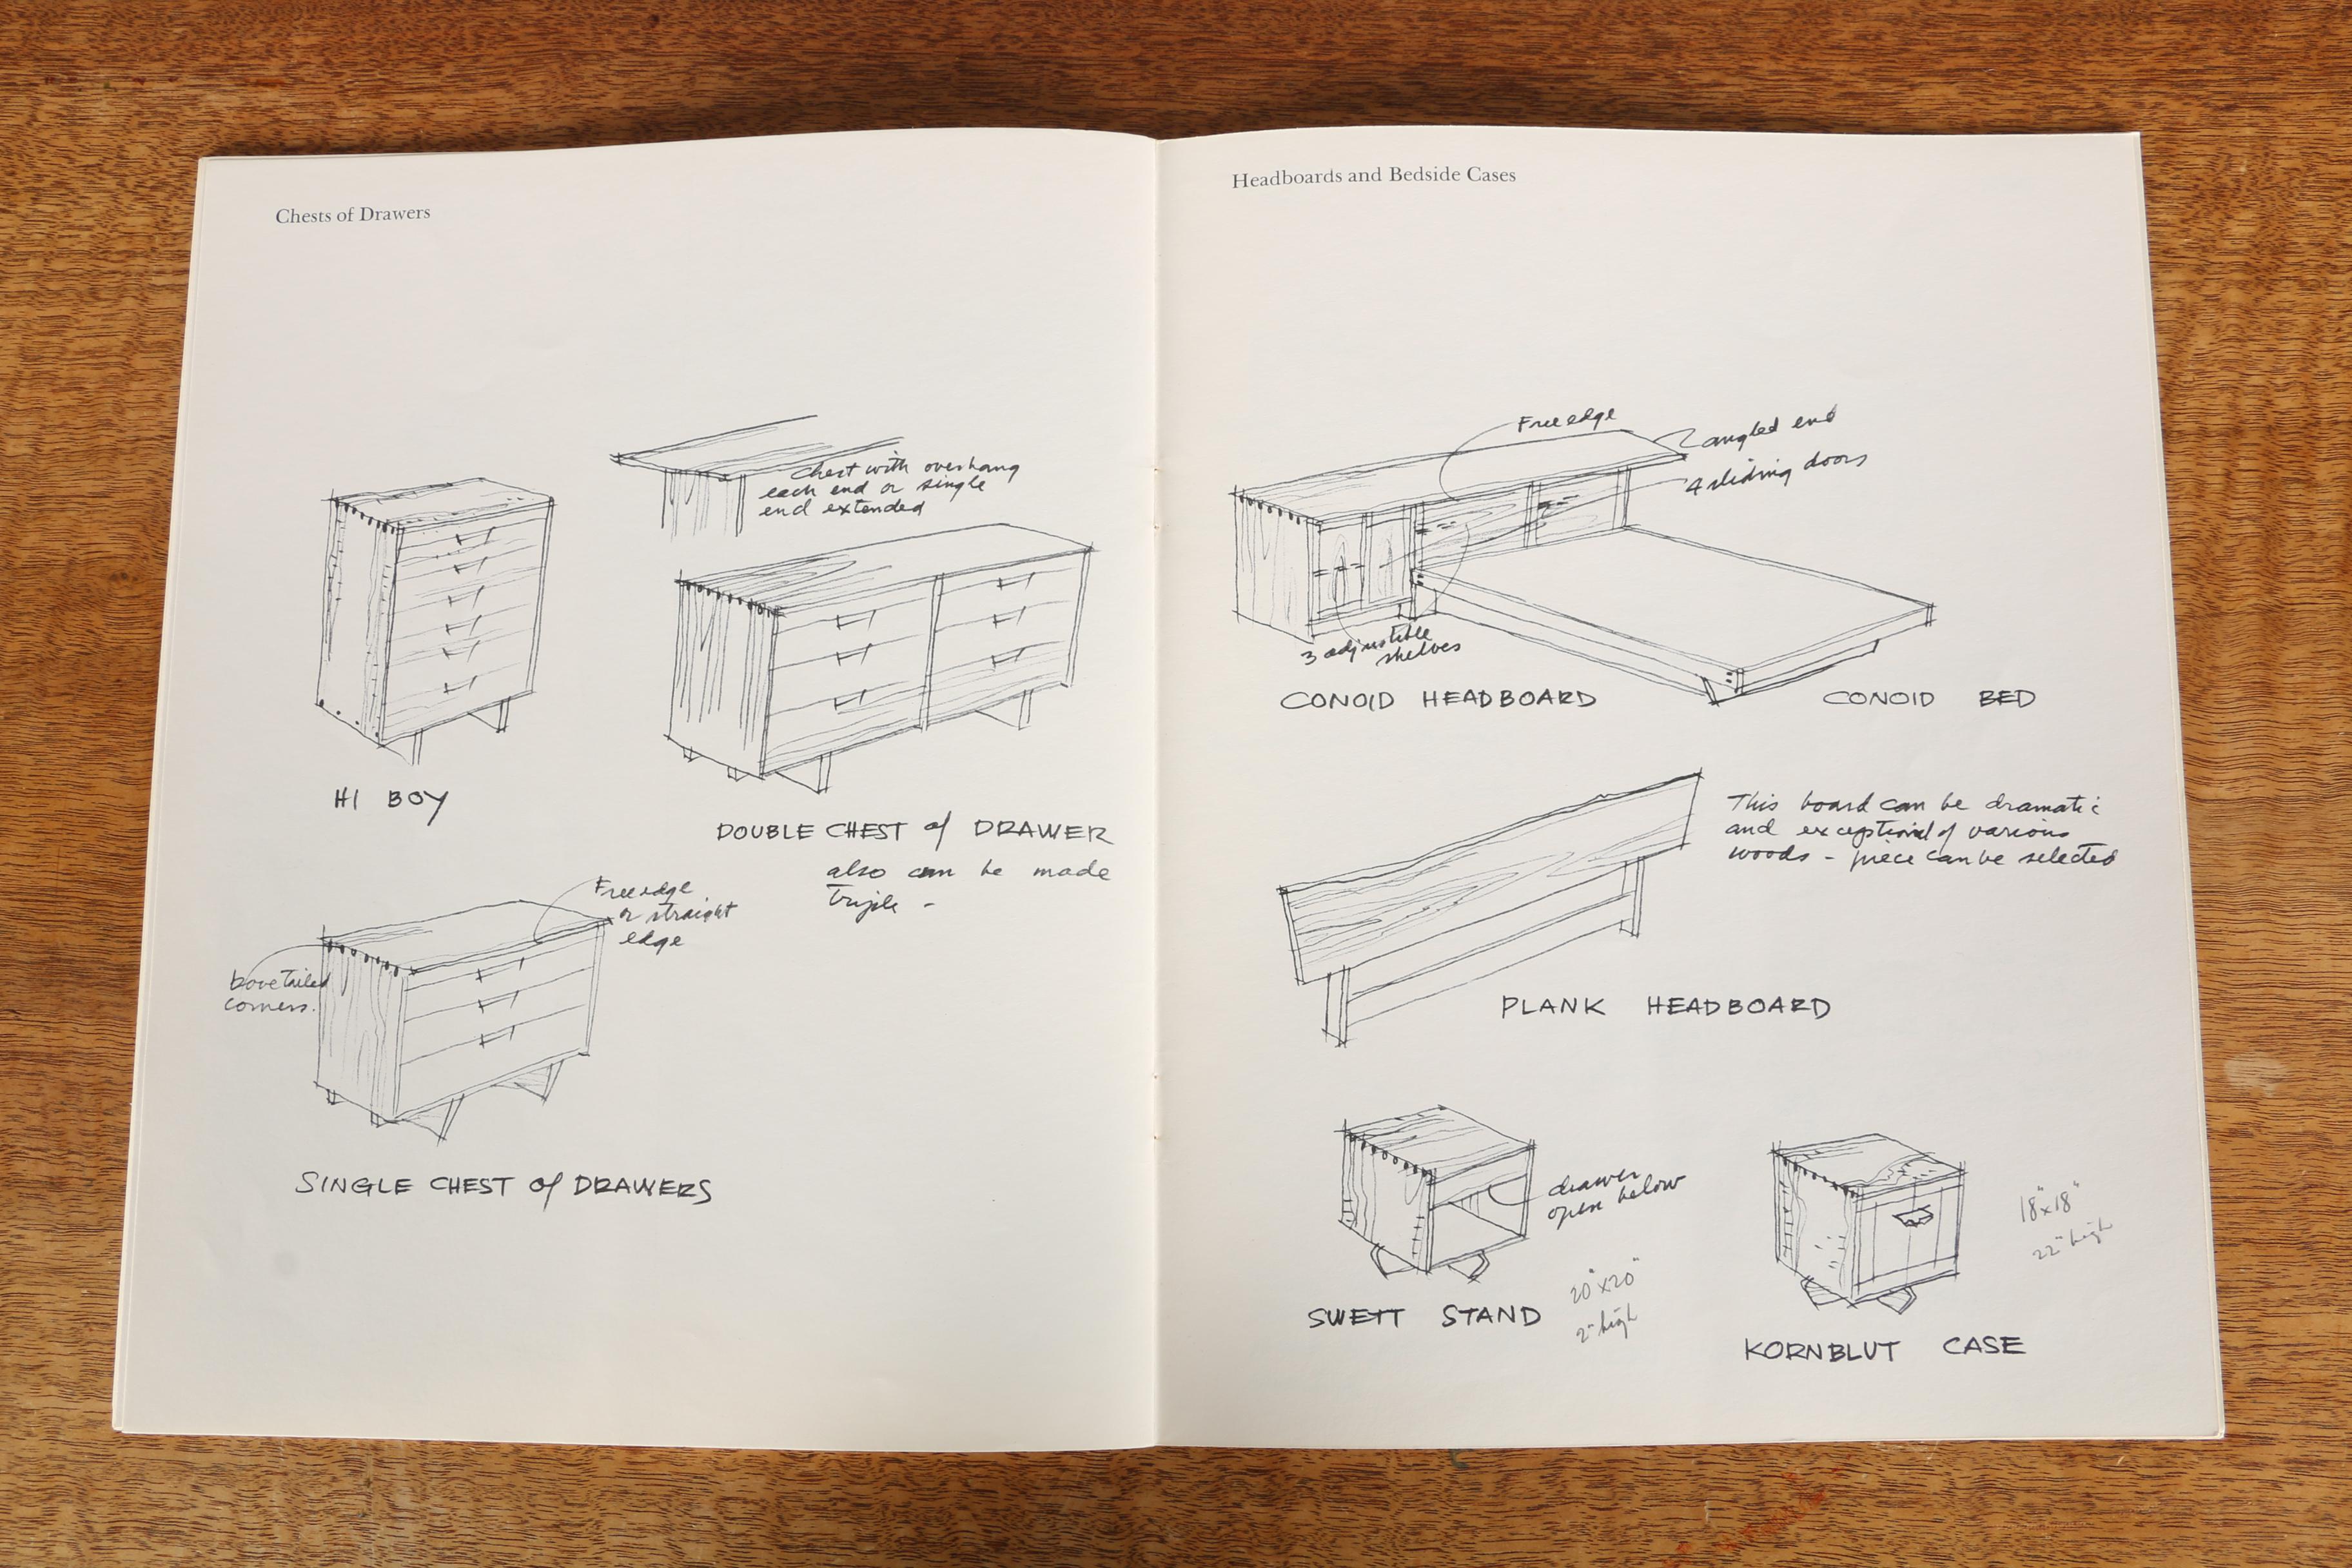 Chests of Drawers
chest with overhang
each end or single
end extended
HI BOY
DOUBLE CHEST of DRAWER
also can be made
triple -
Free edge
or straight
edge
Dovetailed
corners.
SINGLE CHEST of DRAWERS
Headboards and Bedside Cases
Free edge
angled end
4 sliding doors
3 adjustible
shelves
CONOID HEADBOARD
CONOID BED
This board can be dramatic
and exceptional of various
woods - piece can be selected
PLANK HEADBOARD
drawer
open below
20"x20"
2" high
SWETT STAND
18"x18"
22" high
KORNBLUT CASE